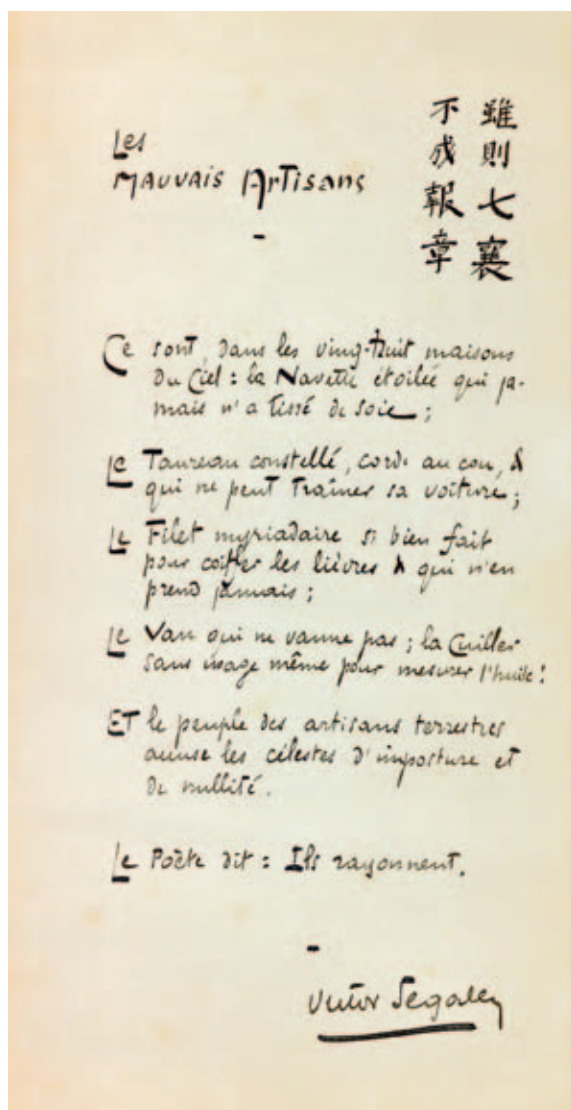 Les
Mauvais Artisans
-
雖則七襄
不成報章
Ce sont, dans les vingt-huit maisons
du Ciel : la Navette étoilée qui ja-
mais n'a tissé de soie ;
Le Taureau constellé, corde au cou, &
qui ne peut traîner sa voiture ;
Le Filet myriadaire si bien fait
pour coiffer les lièvres & qui n'en
prend jamais ;
Le Van qui ne vanne pas ; la Cuiller
sans usage même pour mesurer l'huile !
ET le peuple des artisans terrestres
accuse les célestes d'imposture et
de nullité.
Le Poète dit : Ils rayonnent.
-
Victor Segalen